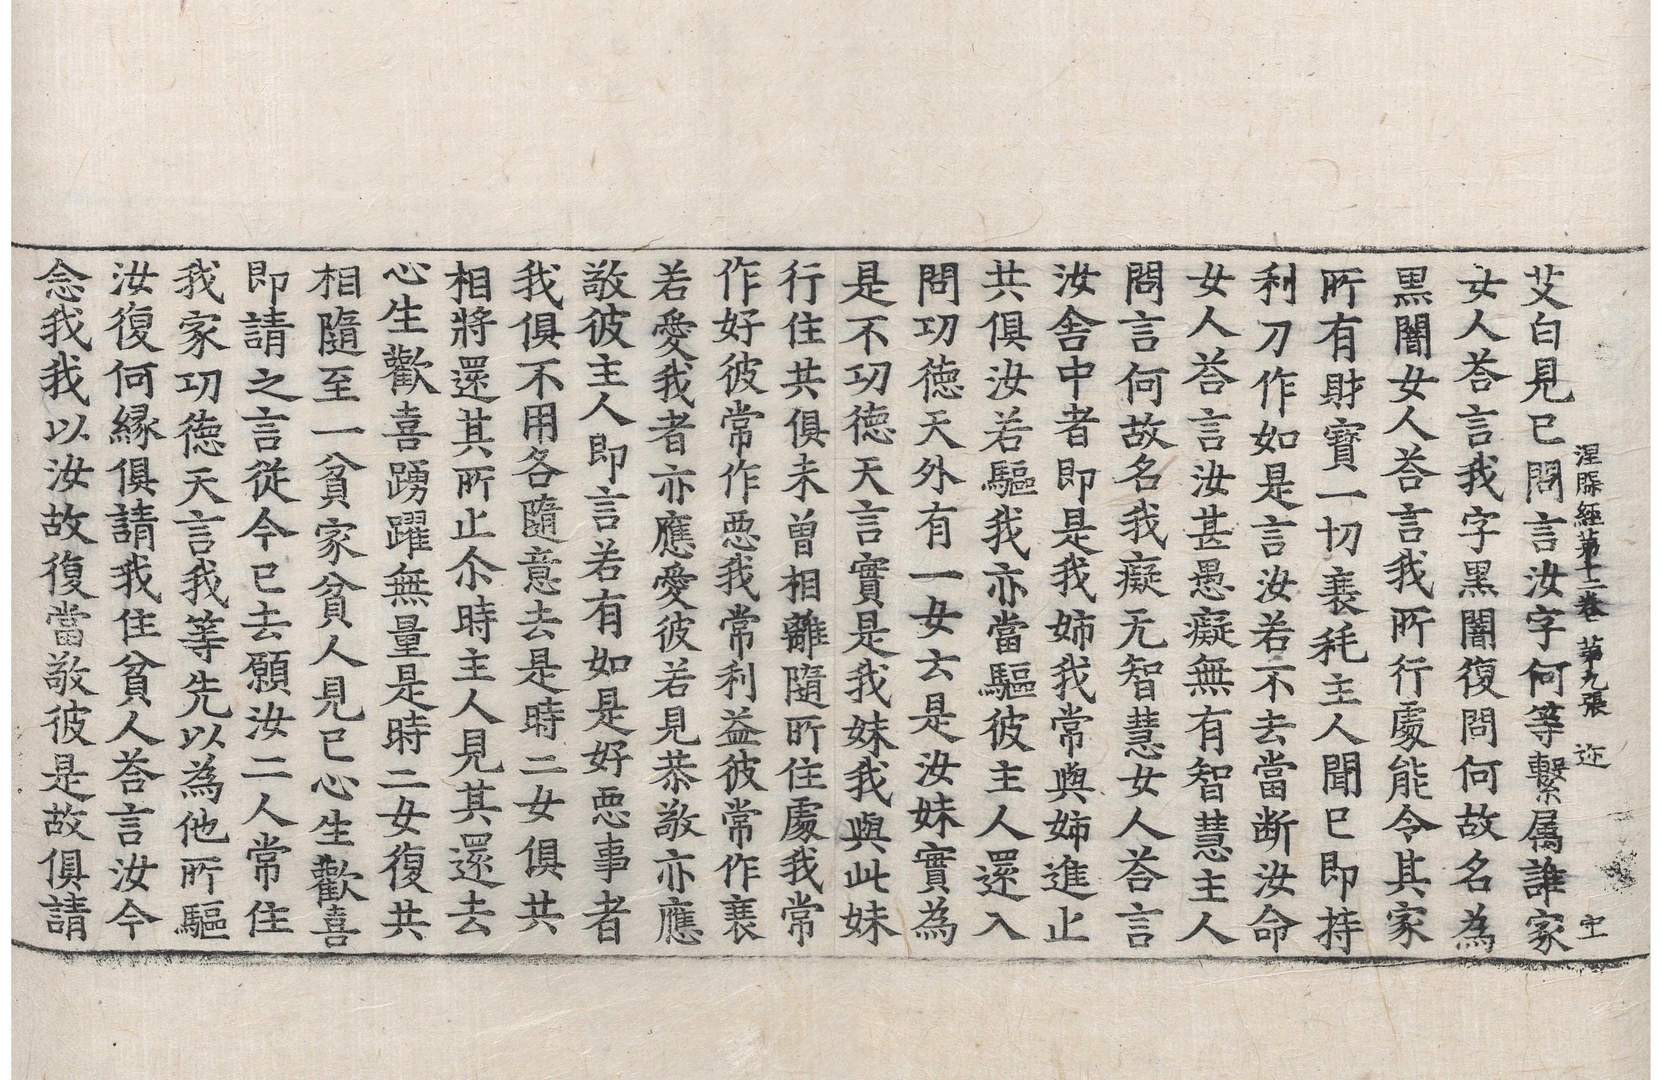 涅槃經第十二卷 苐九張 迩 主
艾白見已問言汝字何等繫属誰家
女人荅言我字黑闇復問何故名為
黑闇女人荅言我所行處能令其家
所有財寶一切衰耗主人聞已即持
利刀作如是言汝若不去當断汝命
女人荅言汝甚愚癡無有智慧主人
問言何故名我癡无智慧女人荅言
汝舍中者即是我姉我常與姉進止
共俱汝若驅我亦當驅彼主人還入
問功德天外有一女云是汝妹實為
是不功德天言實是我妹我與此妹
行住共俱未曾相離隨所住處我常
作好彼常作惡我常利益彼常作衰
若愛我者亦應愛彼若見恭敬亦應
敬彼主人即言若有如是好惡事者
我俱不用各隨意去是時二女俱共
相將還其所止尒時主人見其還去
心生歡喜踴躍無量是時二女復共
相隨至一貧家貧人見已心生歡喜
即請之言從今已去願汝二人常住
我家功德天言我等先以為他所驅
汝復何緣俱請我住貧人荅言汝今
念我我以汝故復當敬彼是故俱請